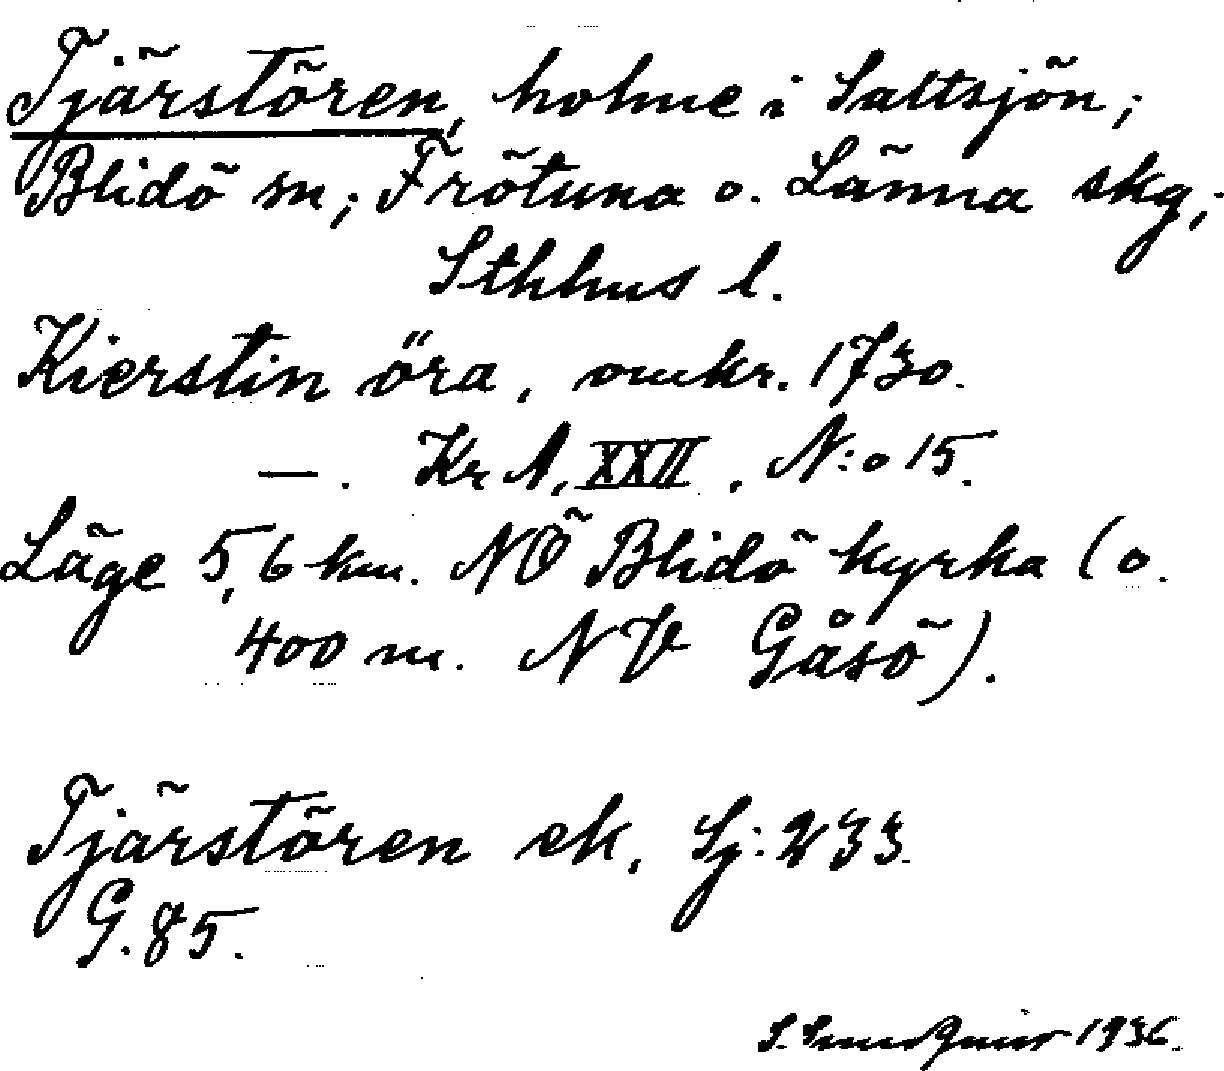 Tjärstören, holme i Saltsjön;
Blidö sn; Frötuna o. Länna skg,
Sthlms l.
Kierstin öra, omkr. 1730.
— . Kr A, XXII, N:o 15.
Läge 5,6 km. NÖ Blidö kyrka (o.
400 m. NV Gåsö).
Tjärstören ek, Sj: 233.
G. 85.
S. 1936.